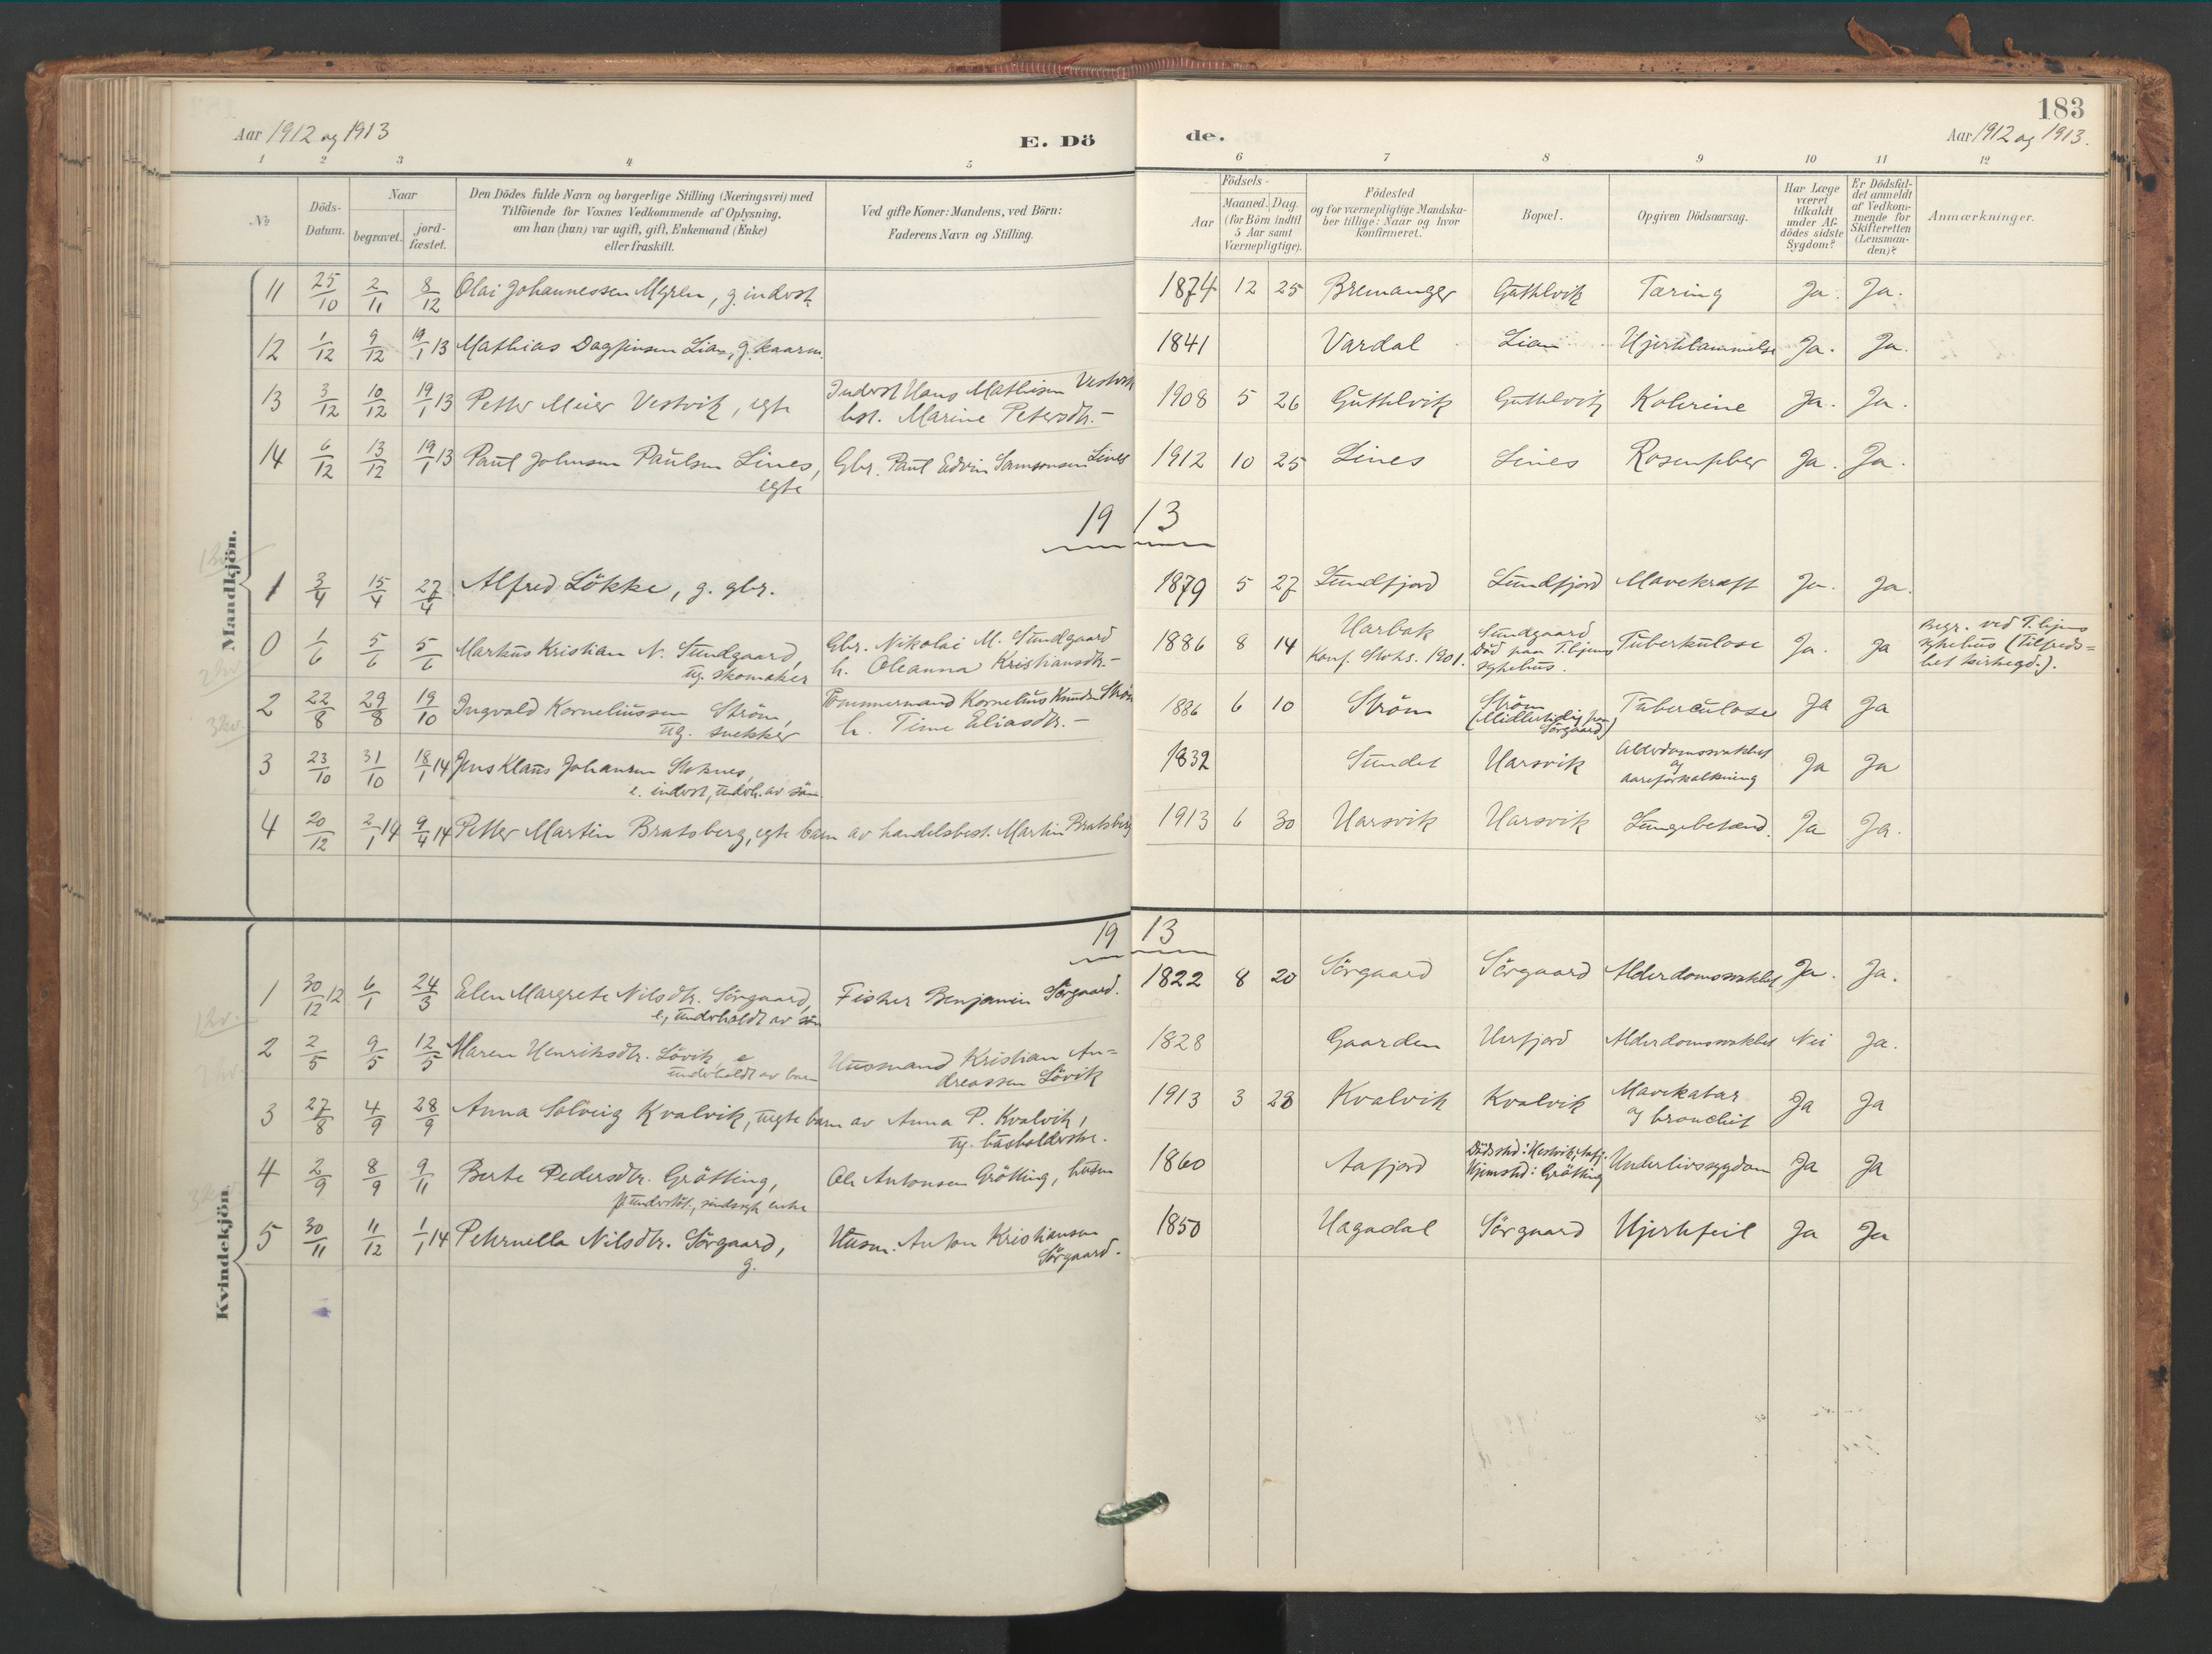 183
Aar 1912 og 1913
E. Dö
de.
Aar 1912 og 1913.
1 2 3 4 5 6 7 8 9 10 11 12
№
Döds-
Datum.
Naar
begravet.
jord-
fæstet.
Den Dödes fulde Navn og borgerlige Stilling (Næringsvei) med
Tilföiende for Voxnes Vedkommende af Oplysning,
om han (hun) var ugift, gift, Enkemand (Enke)
eller fraskilt.
Ved gifte Koner: Mandens, ved Börn:
Faderens Navn og Stilling.
Födsels-
Aar
Maaned. Dag.
(for Börn indtil
5 Aar samt
Værnepligtige).
Födested
og for værnepligtige Mandska-
ber tillige: Naar og hvor
konfirmeret.
Bopæl.
Opgiven Dödsaarsag.
Har Læge
været
tilkaldt
under Af-
dödes sidste
Sygdom?
Er Dödsfal-
det anmeldt
af Vedkom-
mende for
Skifteretten
(Lensman-
den)?
Anmærkninger.
Mandkjön.
11 25/10 2/11 8/12 Olai Johannessen Myren, g. inderst 1874 12 25 Bremanger Guthelvik Tæring Ja. Ja.
12 1/12 9/12 19/1 13 Mathias Dagfinsen Lian, g. kaarm. 1841 Vardal Lian Hjertelammelse Ja. Ja.
13 3/12 10/12 19/1 13 Petter Meier Vestvik, egte Inderst Hans Mathisen Vestvik 1908 5 26 Guthelvik Guthelvik Kolerine Ja. Ja.
hst. Marine Petersdtr. -
14 6/12 13/12 19/1 13 Paul Johnsen Paulsen Lines, Gbr. Paul Edvin Samsonsen Lines 1912 10 25 Lines Lines Rosenfeber Ja. Ja.
egte
19 13
1 3/4 15/4 27/4 Alfred Lökke, g. gbr. 1879 5 27 Sundfjord Sundfjord Mavekræft Ja. Ja.
0 1/6 5/6 5/6 Markus Kristian N. Sundgaard, Gbr. Nikolai M. Sundgaard 1886 8 14 Harbak Sundgaard Tuberkulose Ja. Ja Begr. ved T.hjems
ug. skomaker h. Oleanna Kristiansdtr. - Konf. Stoks. 1901. Död paa T.hjems sykehus (Tilfreds=
sykehus. het kirkegd.).
2 22/8 29/8 19/10 Ingvald Korneliussen Ström, Tömmermand Kornelius Knudsen Ström 1886 6 10 Ström Ström Tuberculose Ja Ja
ug. snekker h. Tine Eliasdtr. - (Midlertidig paa
Sörgaard)
3 23/10 31/10 18/1 14 Jens Klaus Johansen Stoknes, 1832 Sundet Harsvik Alderdomssvakhet Ja Ja
e. inderst, underh. av sön. og
aareforkalkning
4 20/12 2/1 14 9/4 14 Petter Martin Bratsberg, egte barn av handelsbest. Martin Bratsberg 1913 6 30 Harsvik Harsvik Lungebetænd. Ja Ja.
Kvindekjön.
19 13
1 30/12 12 6/1 24/3 Elen Margrete Nilsdtr. Sörgaard, Fisker Benjamin Sörgaard. 1822 8 20 Sörgaard Sörgaard Alderdomssvakhet Ja. Ja.
e., underholdt av sön
2 2/5 9/5 12/5 Maren Henriksdtr. Lövik, e Husmand Kristian An= 1828 Gaarden Herfjord Alderdomssvakhet Nei Ja.
underholdt av barn dreassen Lövik
3 27/8 4/9 28/9 Anna Solveig Kvalvik, uegte barn av Anna P. Kvalvik, 1913 3 28 Kvalvik Kvalvik Mavekatar Ja Ja
ug. husholderske. og bronchit
4 2/9 8/9 9/11 Berte Pedersdtr. Grötting, Ole Antonsen Grötting, husm 1860 Aafjord Dödssted: Hestvik, Aafj. Underlivssygdom Ja Ja
sindssyk enke Hjemsted: Grötting
5 30/11 11/12 1/1 14 Petrnella Nilsdtr. Sörgaard, Husm. Anton Kristiansen 1850 Hagadal Sörgaard Hjertefeil Ja Ja
g. Sörgaard.